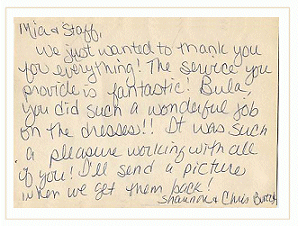 Mia & Staff,
We just wanted to thank you
for everything! The service you
provide is fantastic! Bula,
you did such a wonderful job
on the dresses!! It was such
a pleasure working with all
of you! I'll send a picture
when we get them back!
Shannon & Chris